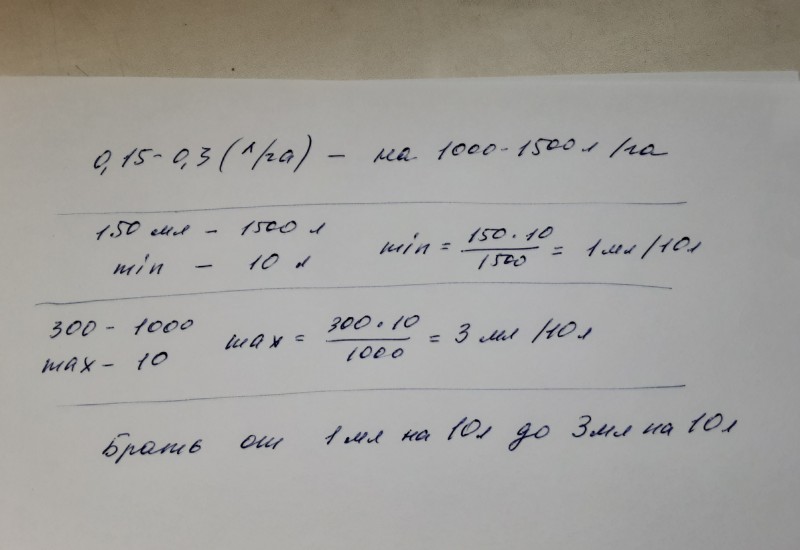 0,15-0,3 (л/га) - на 1000-1500 л/га
150 мл - 1500 л
min - 10 л
min = 150·10/1500 = 1 мл/10 л
300 - 1000
max - 10
max = 300·10/1000 = 3 мл/10 л
Брать от 1 мл на 10 л до 3 мл на 10 л